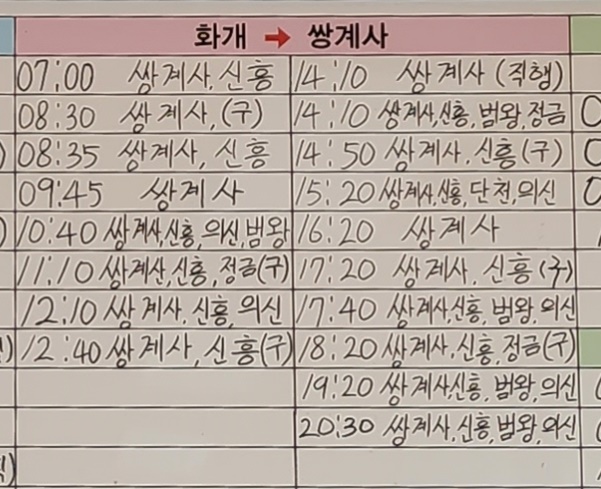 화개 → 쌍계사
07:00 쌍계사, 신흥
08:30 쌍계사, (구)
08:35 쌍계사, 신흥
09:45 쌍계사
10:40 쌍계사, 신흥, 의신, 범왕
11:10 쌍계사, 신흥, 정금(구)
12:10 쌍계사, 신흥, 의신
12:40 쌍계사, 신흥(구)
14:10 쌍계사 (직행)
14:10 쌍계사, 신흥, 범왕, 정금
14:50 쌍계사, 신흥(구)
15:20 쌍계사, 신흥, 단천, 의신
16:20 쌍계사
17:20 쌍계사, 신흥(구)
17:40 쌍계사, 신흥, 범왕, 의신
18:20 쌍계사, 신흥, 정금(구)
19:20 쌍계사, 신흥, 범왕, 의신
20:30 쌍계사, 신흥, 범왕, 의신